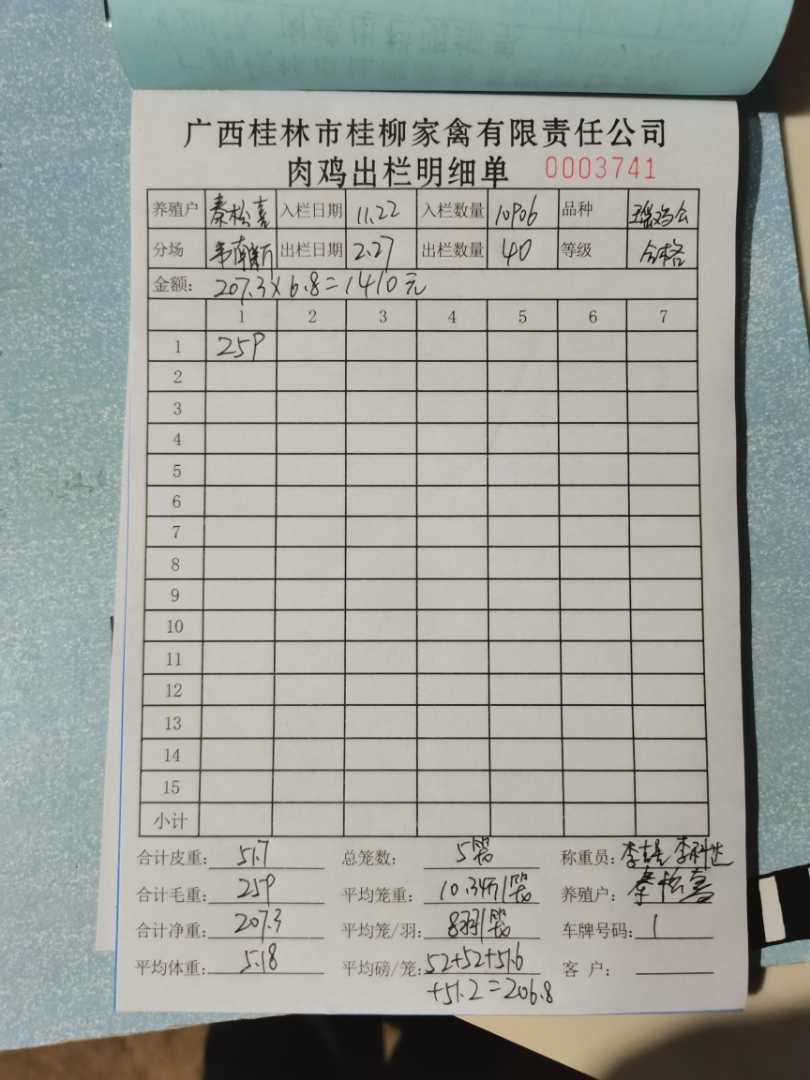 广西桂林市桂柳家禽有限责任公司
肉鸡出栏明细单 0003741
养殖户 秦松喜 入栏日期 11.22 入栏数量 10906 品种 瑶鸡公
分场 出栏日期 2.27 出栏数量 40 等级 合格
金额: 207.3×6.8=1410元
1 2 3 4 5 6 7
1 259
2
3
4
5
6
7
8
9
10
11
12
13
14
15
小计
合计皮重: 51.7 总笼数: 5笼 称重员:
合计毛重: 259 平均笼重: 10.34斤/笼 养殖户: 秦松喜
合计净重: 207.3 平均笼/羽: 8羽/笼 车牌号码: 1
平均体重: 5.18 平均磅/笼: 52+52+51.6 客 户:
+51.2=206.8